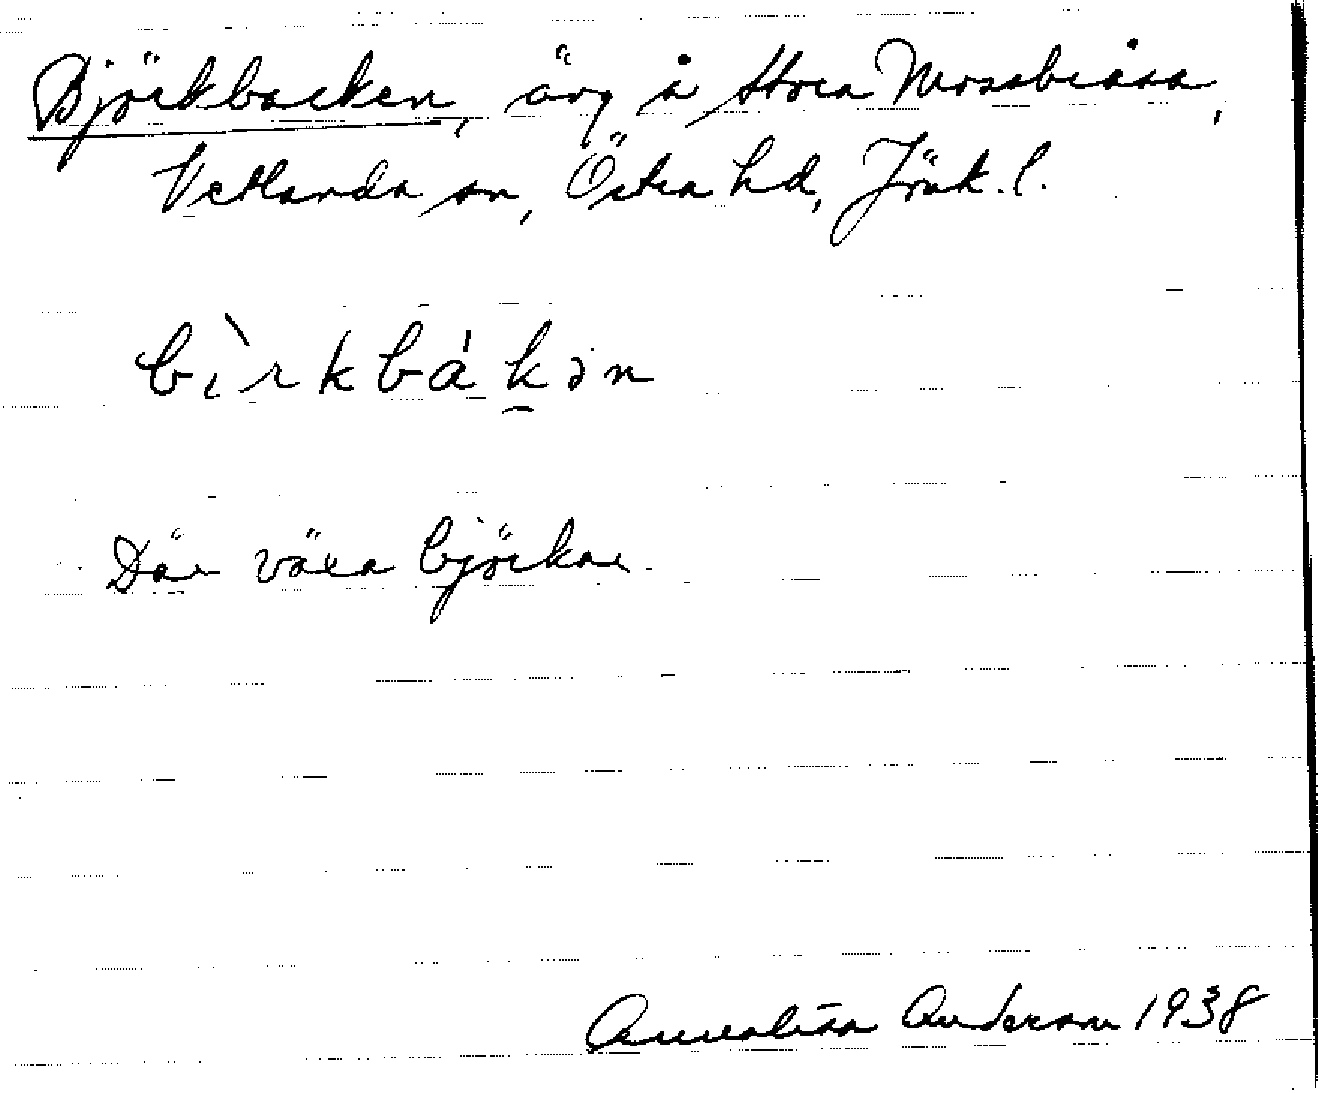 Björkbacken, äng å Stora Mossbråna,
Vetlanda sn, Östra hd, Jönk. l.
bìrkbákən
Där växa björkar.
Annalisa Anderson 1938